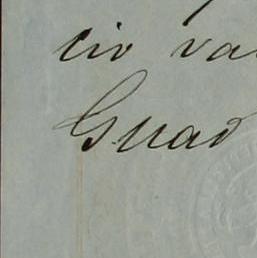 cio va
Guad